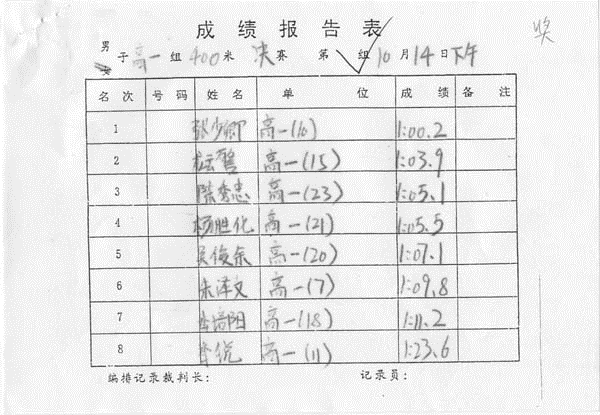 成绩报告表
奖
男子高一组400米决赛 第 组10月14日下午
名次 号码 姓名 单位 成绩 备注
1 张少卿 高一(10) 1:00.2
2 高一(15) 1:03.9
3 陈秀忠 高一(23) 1:05.1
4 杨胜化 高一(21) 1:05.5
5 吴俊余 高一(20) 1:07.1
6 朱泽文 高一(7) 1:09.8
7 李培阳 高一(18) 1:11.2
8 李悦 高一(11) 1:23.6
编排记录裁判长： 记录员：